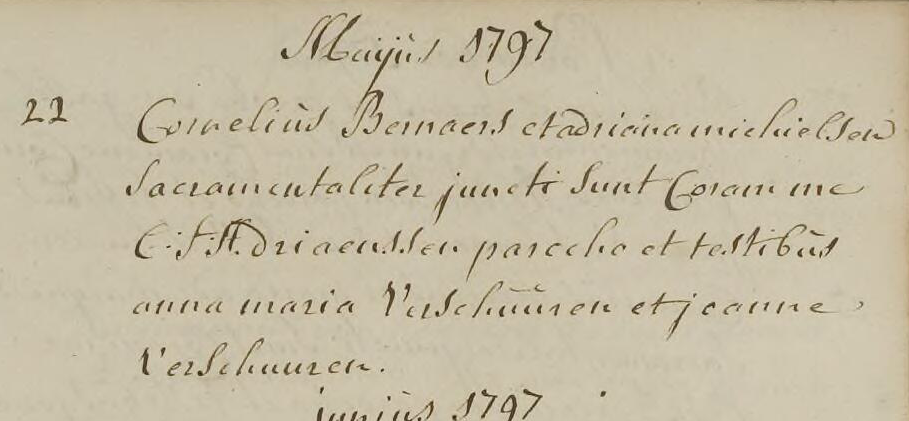 Maijus 1797
22 Cornelius Bernaers et adriana michielsen
Sacramentaliter juncti Sunt Coram me
C: J: Adriaenssen parocho et testibus
anna maria Verschuuren et joanne
Verschuuren.
junius 1797